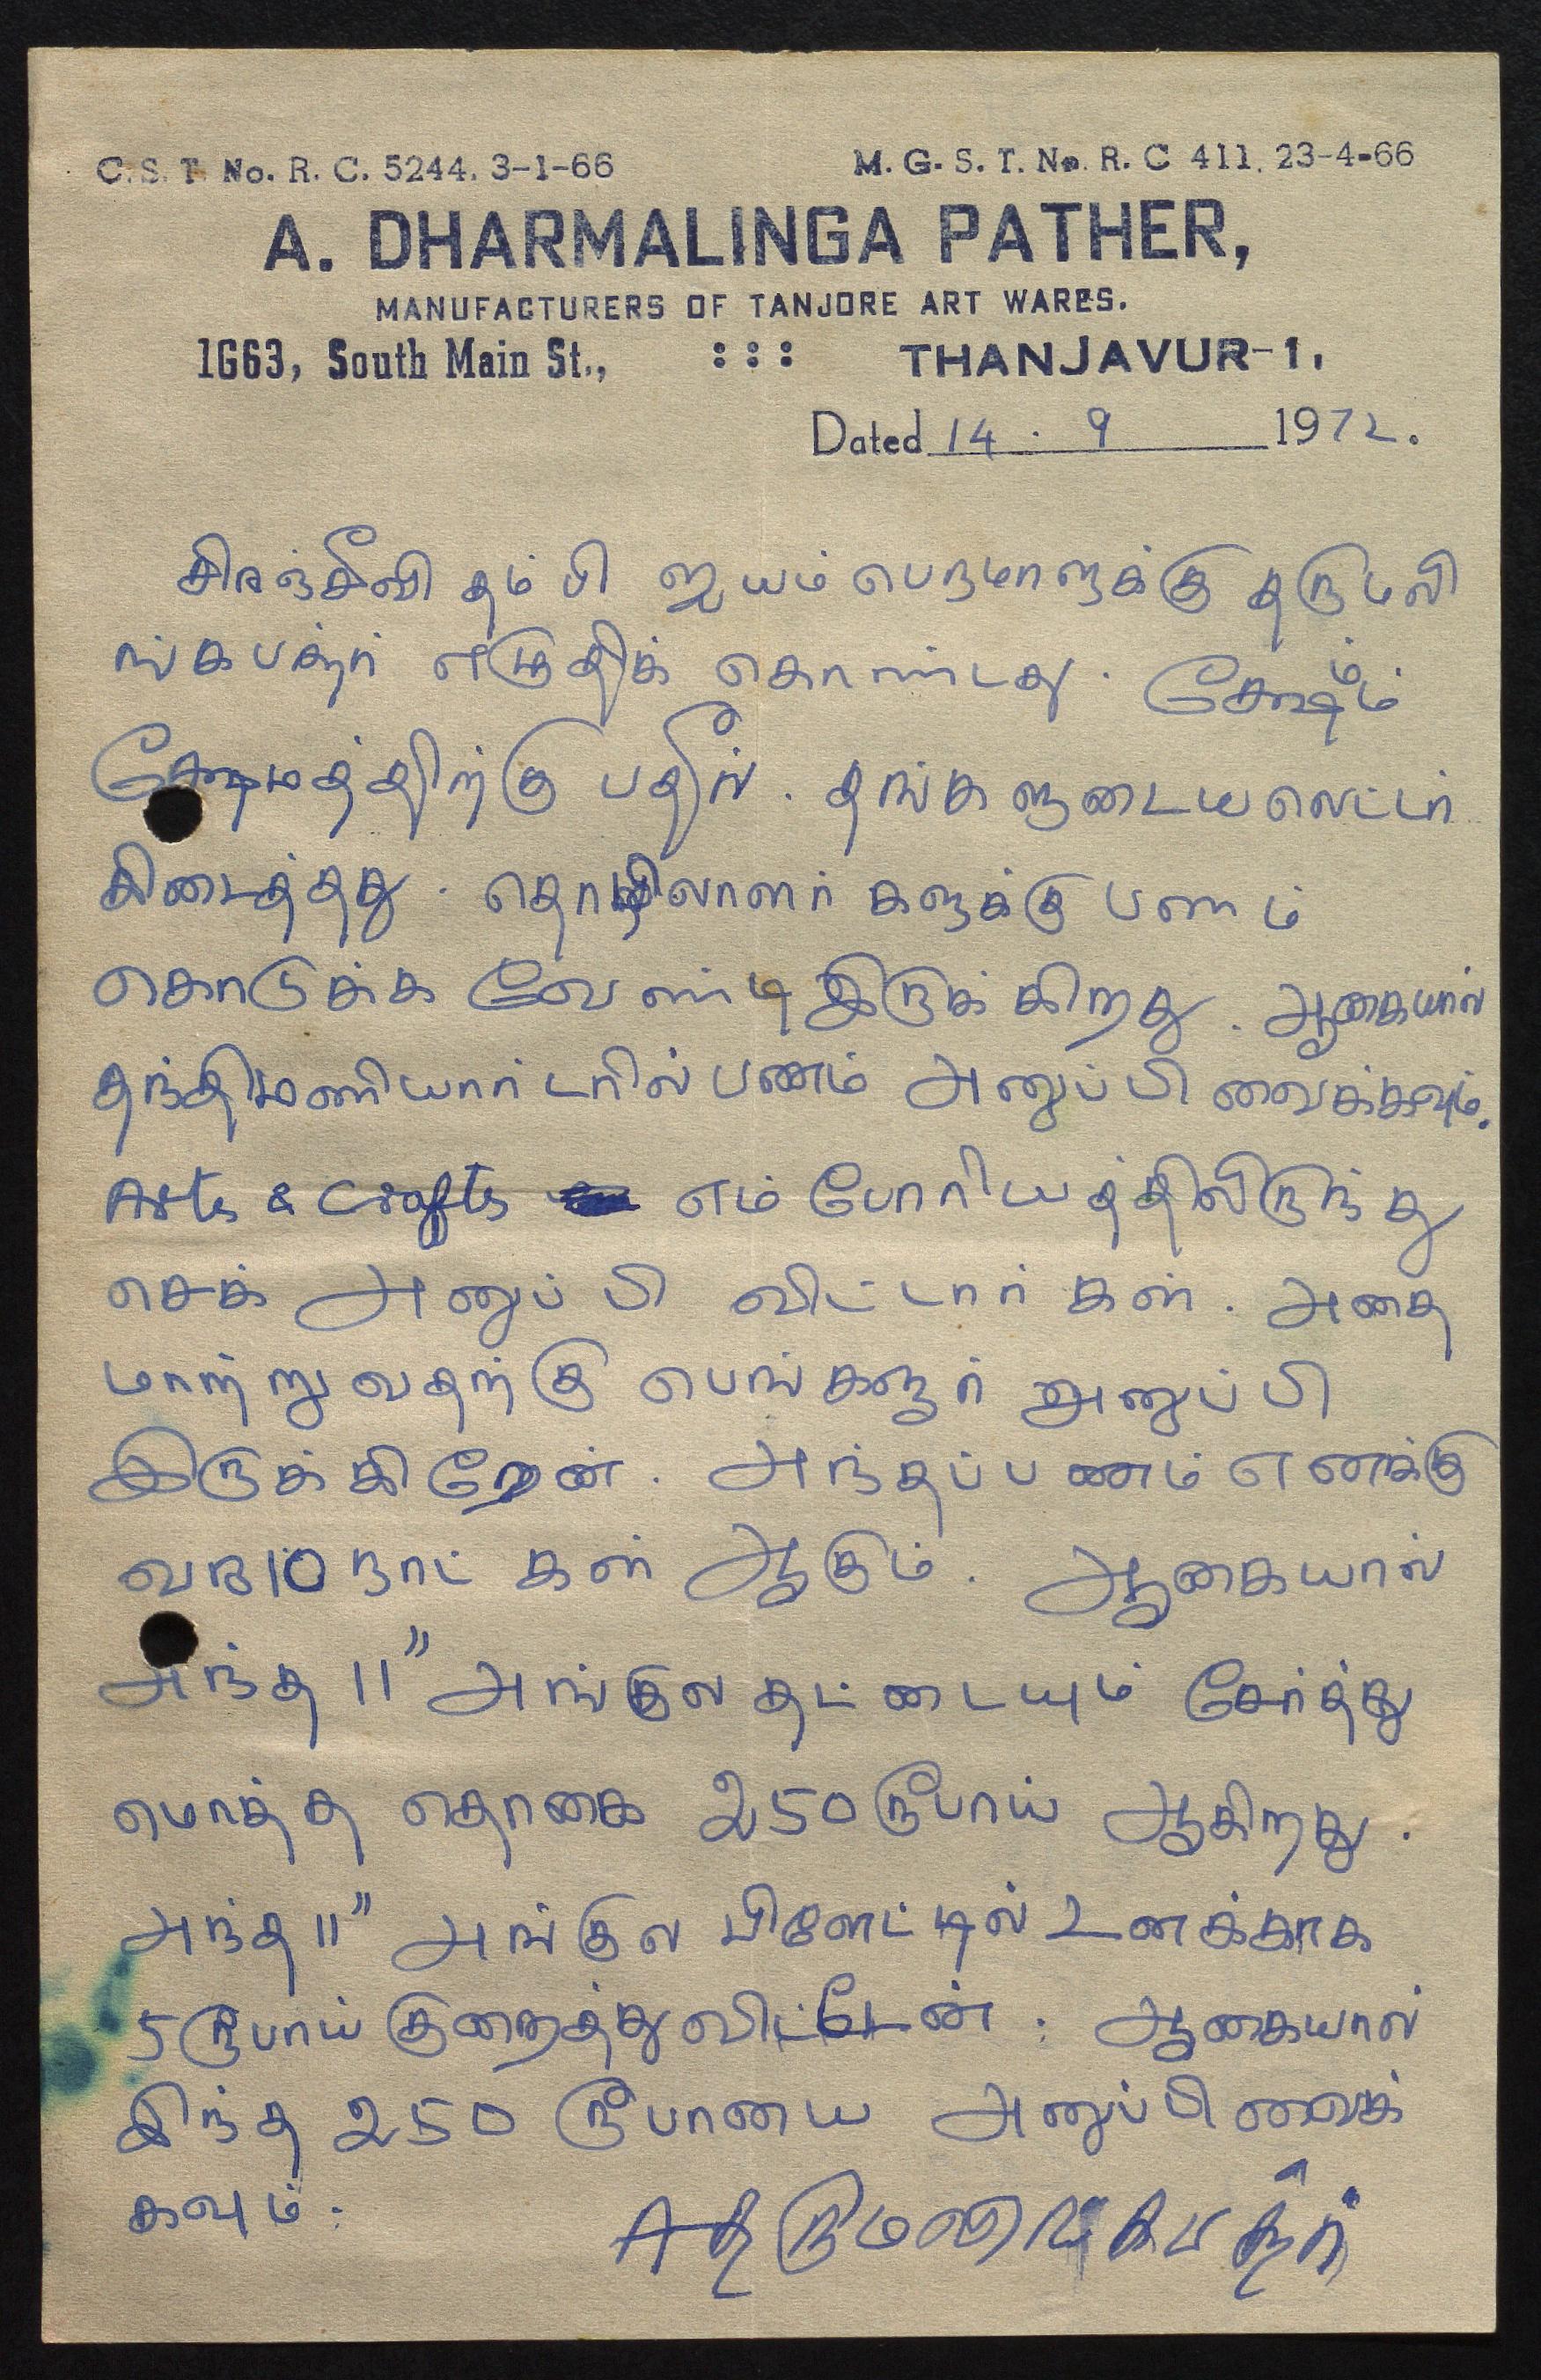 C. S. T. No. R. C. 5244. 3-1-66 M. G. S. T. No. R. C 411. 23-4-66
A. DHARMALINGA PATHER,
MANUFACTURERS OF TANJORE ART WARES.
1663, South Main St., : : : THANJAVUR-1.
Dated 14 . 9 1972.
சிரஞ்சீவி தம்பி ஐயம்பெருமாளுக்கு தருமலி
ங்கபத்தர் எழுதிக் கொண்டது. க்ஷேமம்
க்ஷேமத்திற்கு பதில். தங்களுடைய லெட்டர்
கிடைத்தது. தொழிலாளர்களுக்கு பணம்
கொடுக்க வேண்டி இருக்கிறது. ஆகையால்
தந்திமணியார்டரில் பணம் அனுப்பி வைக்கவும்.
Arts & Crafts எம்போரியத்திலிருந்து
செக் அனுப்பி விட்டார்கள். அதை
மாற்றுவதற்கு பெங்களூர் அனுப்பி
இருக்கிறேன். அந்தப்பணம் எனக்கு
வர 10 நாட்கள் ஆகும். ஆகையால்
அந்த 11" அங்குல தட்டையும் சேர்த்து
மொத்த தொகை 250 ரூபாய் ஆகிறது.
அந்த 11" அங்குல பிளேட்டில் உனக்காக
5 ரூபாய் குறைத்துவிட்டேன். ஆகையால்
இந்த 250 ரூபாயை அனுப்பி வைக்
கவும்.
A தருமலிங்கபத்தர்